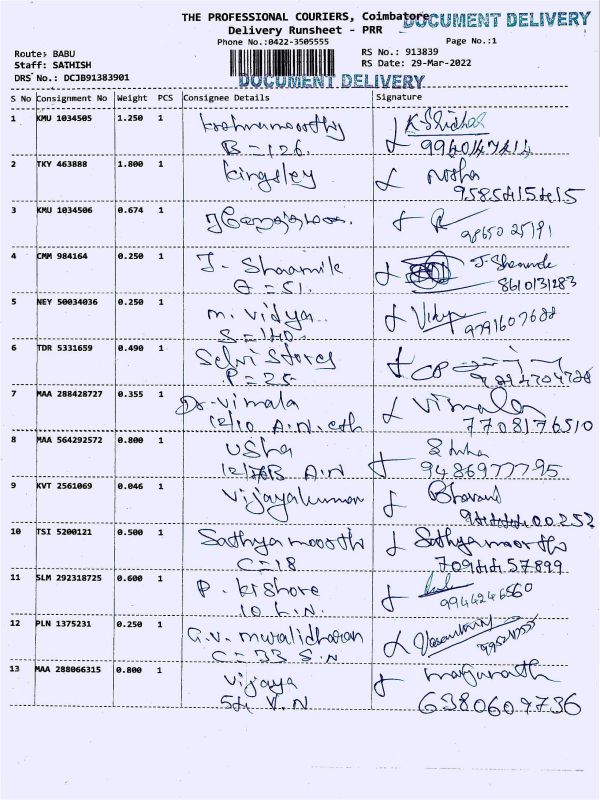 THE PROFESSIONAL COURIERS, Coimbatore
DOCUMENT DELIVERY
Delivery Runsheet - PRR
Phone No.:0422-3505555
Page No.:1
Route: BABU
RS No.: 913839
Staff: SATHISH
RS Date: 29-Mar-2022
DRS No.: DCJB91383901
DOCUMENT DELIVERY
S No Consignment No Weight PCS Consignee Details Signature
1 KMU 1034505 1.250 1 Krishnamoorthy K. Shidhar
B = 126. 9940147414
2 TKY 463888 1.800 1 kingsley
9585415415
3 KMU 1034506 0.674 1
9865025191
4 CMM 984164 0.250 1 J. Shaamik
8610131283
5 NEY 50034036 0.250 1 m. vidya Vidya
S = 140. 9791607688
6 TDR 5331659 0.490 1 Selvi Stores
P = 25
7 MAA 288428727 0.355 1 Dr. vimala Vimala
12/10 A.N. 7708176510
8 MAA 564292572 0.800 1 usha
A.N 9486977795
9 KVT 2561069 0.046 1 vijayakumar
10 TSI 5200121 0.500 1 Sathya moorthi Sathya moorthi
C = 18 7094457899
11 SLM 292318725 0.600 1 P. kishore
10 L.N. 9944246560
12 PLN 1375231 0.250 1 G.V. muralidharan
C = 33 S.N
13 MAA 288066315 0.800 1 vijaya manjunath
54 V.N 6380609736